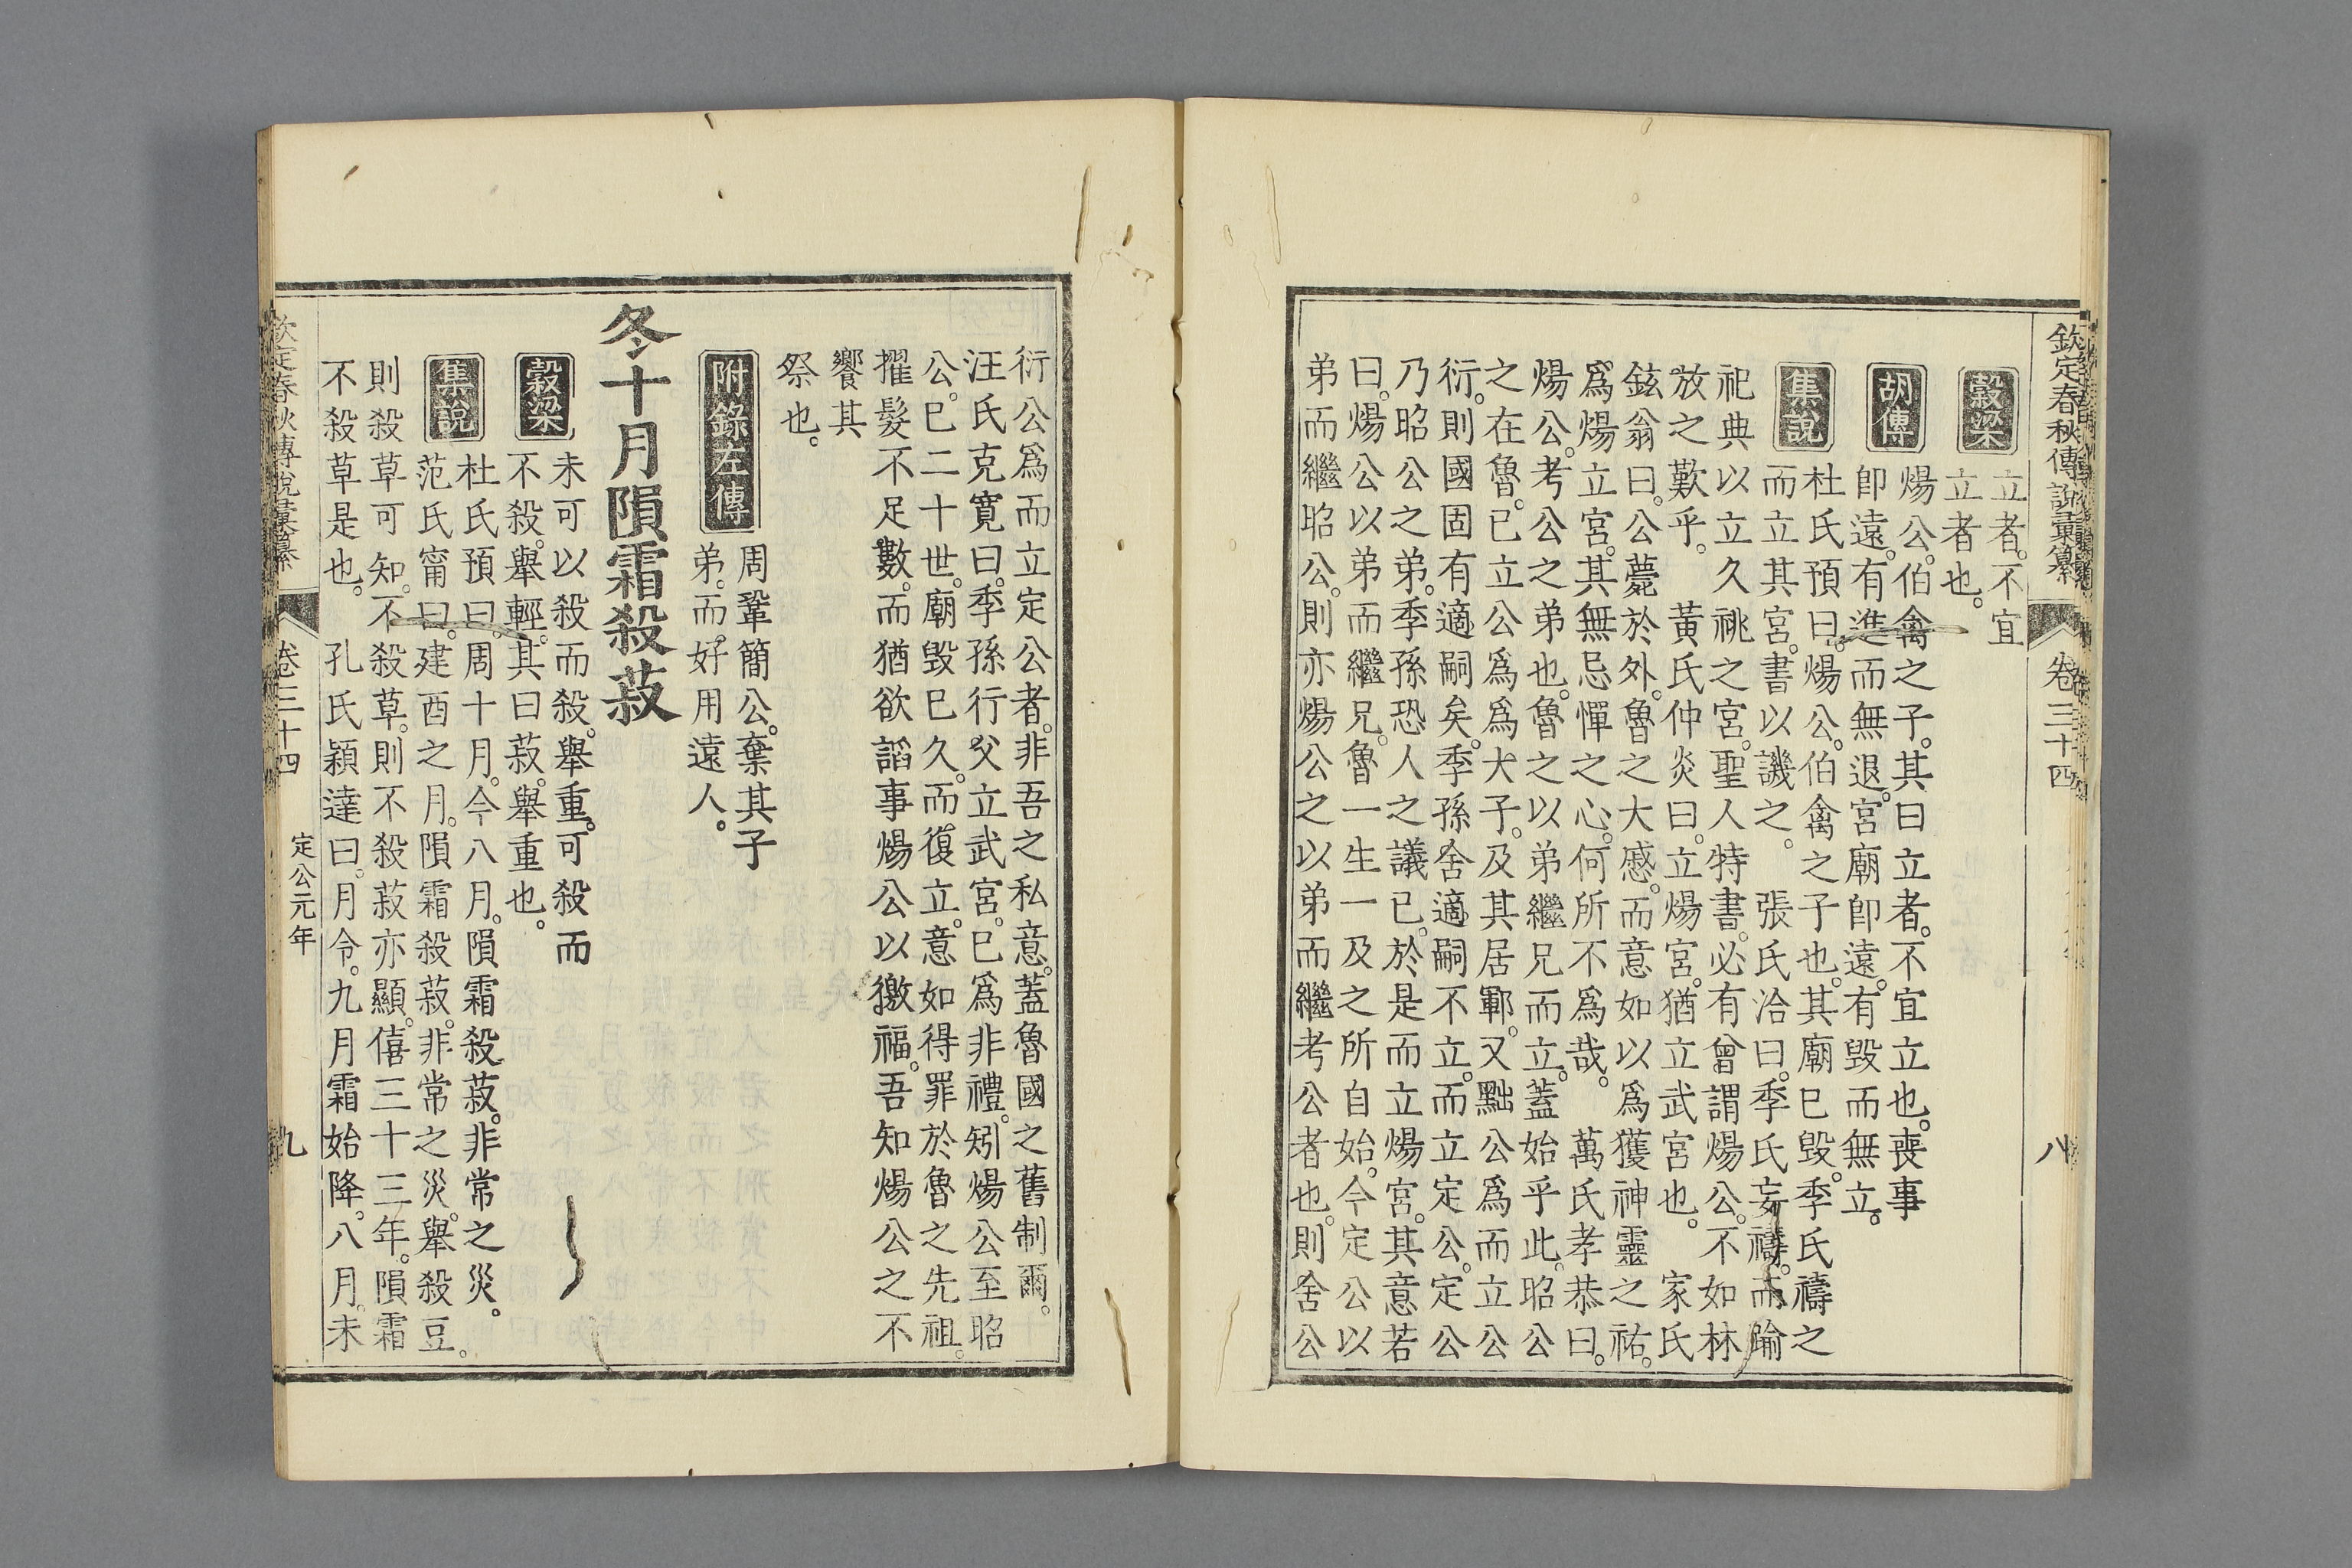 欽定春秋傳說彙纂 卷三十四 八
穀梁 立者。不宜
立者也。
胡傳 煬公。伯禽之子。其曰立者。不宜立也。喪事
卽遠。有進而無退。宮廟卽遠。有毀而無立。
集說 杜氏預曰。煬公。伯禽之子也。其廟已毀。季氏禱之
而立其宮。書以譏之。 張氏洽曰。季氏妄禱。而踰
祀典以立久祧之宮。聖人特書。必有曾謂煬公。不如林
放之歎乎。 黃氏仲炎曰。立煬宮。猶立武宮也。 家氏
鉉翁曰。公薨於外。魯之大慼。而意如以爲獲神靈之祐。
爲煬立宮。其無忌憚之心。何所不爲哉。 萬氏孝恭曰。
煬公。考公之弟也。魯之以弟繼兄而立。蓋始乎此。昭公
之在魯。已立公爲爲大子。及其居鄆。又黜公爲而立公
衍。則國固有適嗣矣。季孫舍適嗣不立。而立定公。定公
乃昭公之弟。季孫恐人之議已。於是而立煬宮。其意若
曰。煬公以弟而繼兄。魯一生一及之所自始。今定公以
弟而繼昭公。則亦煬公之以弟而繼考公者也。則舍公
衍公爲而立定公者。非吾之私意。蓋魯國之舊制爾。
汪氏克寬曰。季孫行父立武宮。已爲非禮。矧煬公至昭
公。已二十世。廟毀已久。而復立。意如得罪於魯之先祖。
擢髮不足數。而猶欲諂事煬公以徼福。吾知煬公之不
饗其
祭也。
附錄左傳 周鞏簡公。棄其子
弟。而好用遠人。
冬十月隕霜殺菽
穀梁 未可以殺而殺。舉重。可殺而
不殺。舉輕。其曰菽。舉重也。
集說 杜氏預曰。周十月。今八月。隕霜殺菽。非常之災。
范氏甯曰。建酉之月。隕霜殺菽。非常之災。舉殺豆。
則殺草可知。不殺草。則不殺菽亦顯。僖三十三年。隕霜
不殺草是也。 孔氏穎達曰。月令。九月霜始降。八月。未
欽定春秋傳說彙纂 卷三十四 定公元年 九